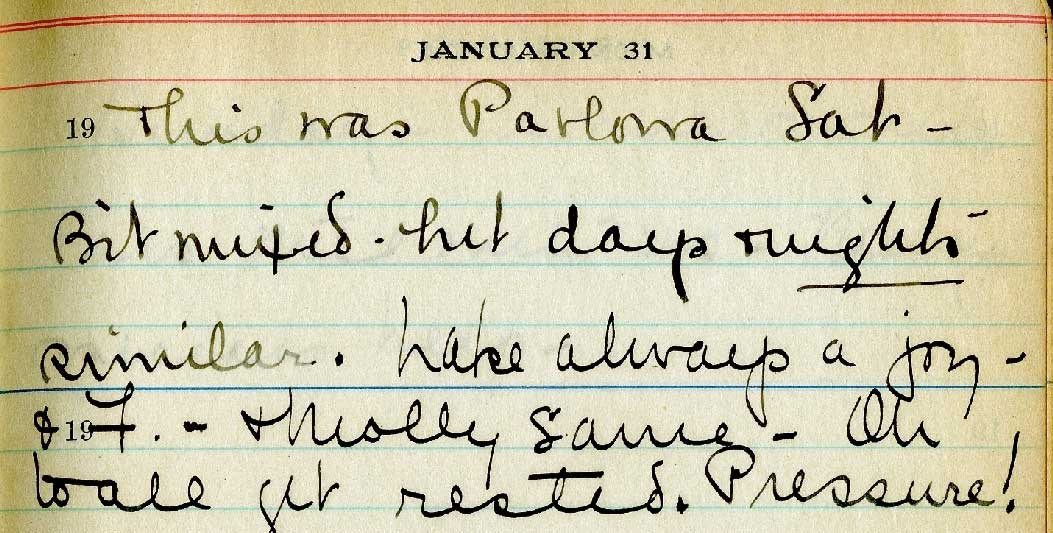 JANUARY 31
19 This was Pavlowa Sat -
Bit mixed - but days & nights -
similar. Lake always a joy -
& 19 F. - & Molly same - Oh,
to all get rested. Pressure!